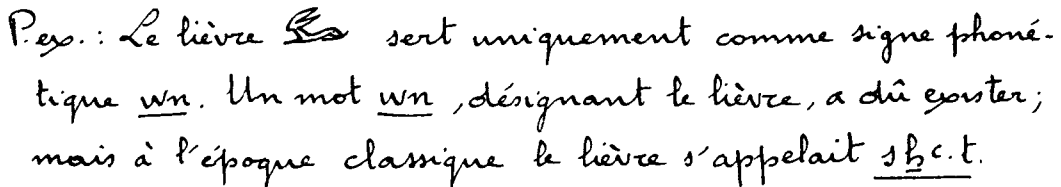 P.ex.: Le lièvre 𓃹 sert uniquement comme signe phoné-
tique wn. Un mot wn, désignant le lièvre, a dû exister;
mais à l'époque classique le lièvre s'appelait sẖꜥ.t.